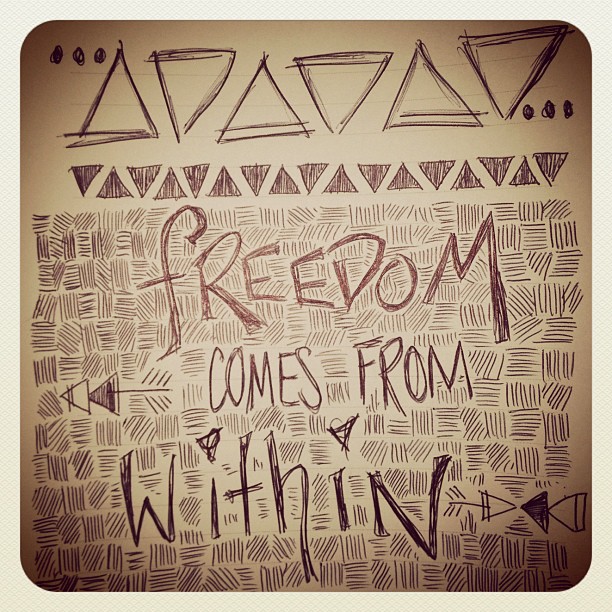 fREEDOM
COMES FROM
withiN